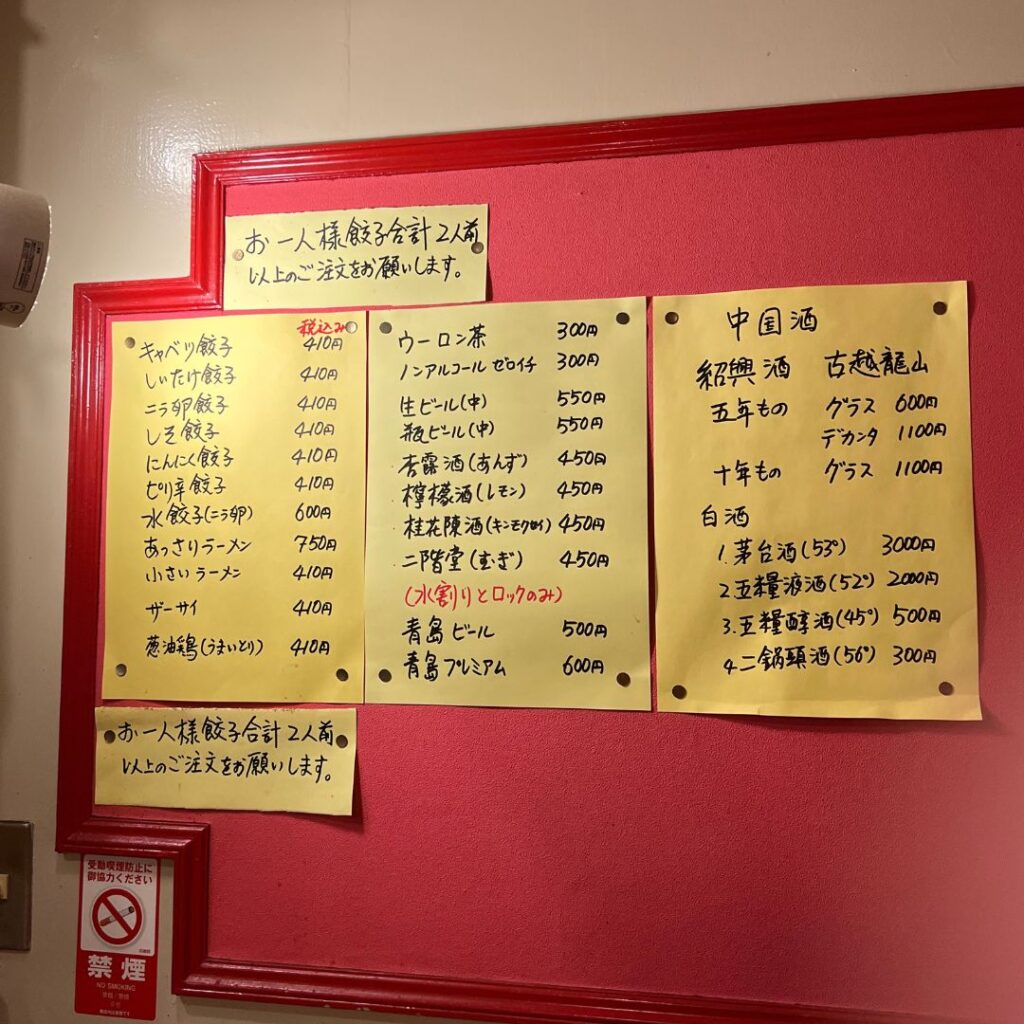 お一人様餃子合計2人前
以上のご注文をお願いします。
税込み
キャベツ餃子 410円
しいたけ餃子 410円
ニラ卵餃子 410円
しそ餃子 410円
にんにく餃子 410円
ピリ辛餃子 410円
水餃子(ニラ卵) 600円
あっさりラーメン 750円
小さいラーメン 410円
ザーサイ 410円
葱油鶏(うまいとり) 410円
お一人様餃子合計2人前
以上のご注文をお願いします。
ウーロン茶 300円
ノンアルコール ゼロイチ 300円
生ビール(中) 550円
瓶ビール(中) 550円
杏露酒(あんず) 450円
檸檬酒(レモン) 450円
桂花陳酒(キンモクセイ) 450円
二階堂(むぎ) 450円
(水割りとロックのみ)
青島ビール 500円
青島プレミアム 600円
中国酒
紹興酒 古越龍山
五年もの グラス 600円
デカンタ 1100円
十年もの グラス 1100円
白酒
1.茅台酒(53°) 3000円
2.五糧液酒(52°) 2000円
3.五糧醇酒(45°) 500円
4.二鍋頭酒(56°) 300円
受動喫煙防止に
御協力ください
禁煙
NO SMOKING